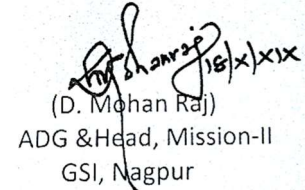 (D. Mohan Raj)
ADG &Head, Mission-II
GSI, Nagpur